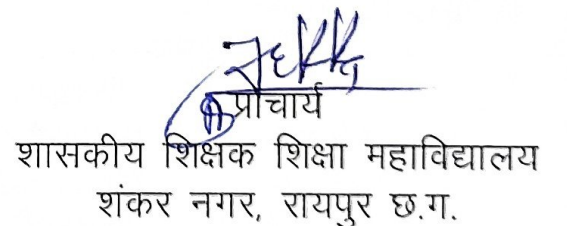 प्राचार्य
शासकीय शिक्षक शिक्षा महाविद्यालय
शंकर नगर, रायपुर छ.ग.